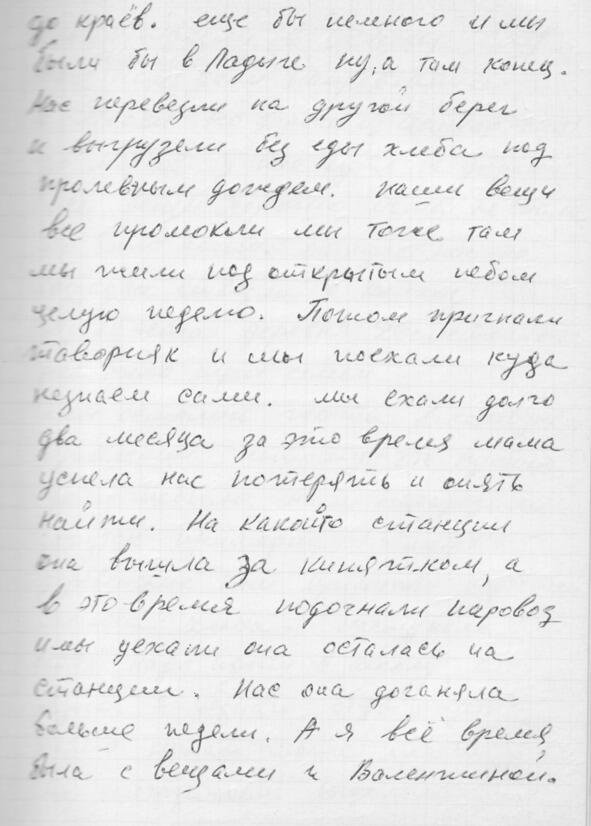 до краёв. еще бы немного и мы
были бы в Ладыге ну, а там конец.
Нас перевезли на другой берег
и выгрузели без еды хлеба под
пролевным дождем. наши вещи
все промокли мы тоже там
мы жили под открытым небом
целую неделю. Потом пригнали
товорняк и мы поехали куда
незнаем сами. мы ехали долго
два месяца за это время мама
успела нас потерять и опять
найти. На какойто станции
она вышла за кипятком, а
в это-время подогнали паровоз
и мы уехали она осталась на
станции. Нас она доганяла
больше недели. А я всё время,
была с вещами и Валентиной.